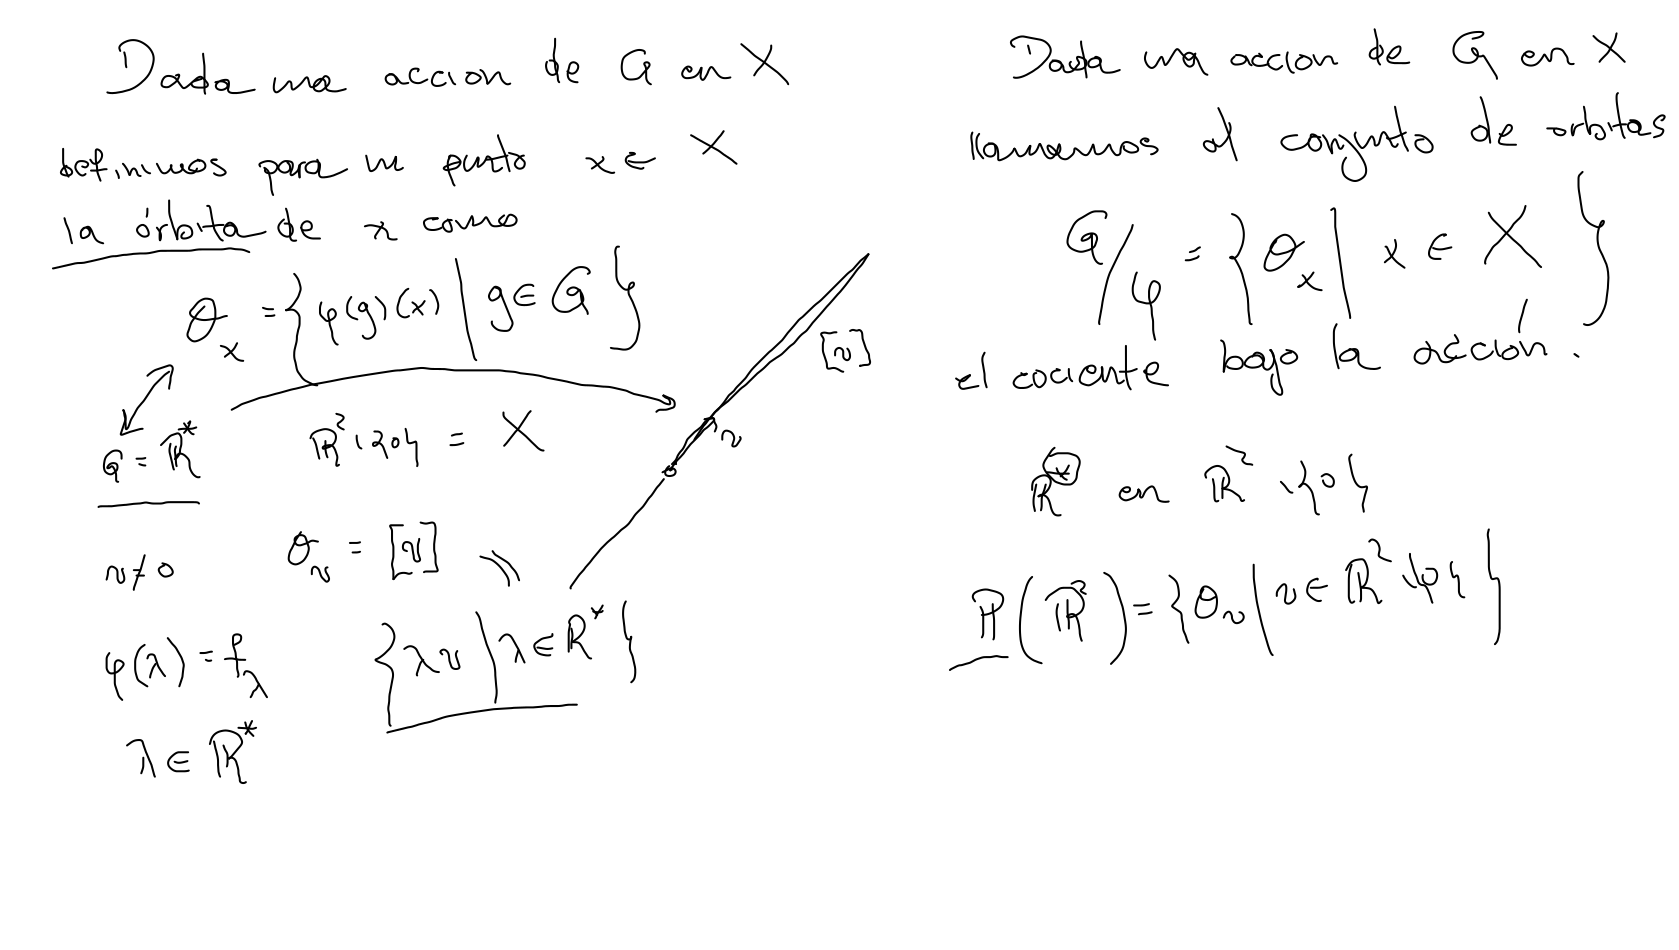 Dada una accion de G en X
definimos para un punto x ∈ X
la órbita de x como
θ_x = { φ(g)(x) | g ∈ G }
[v]
G = ℝ*
ℝ² \ {0} = X
v
v ≠ 0
θ_v = [v]
φ(λ) = f_λ
{ λv | λ ∈ ℝ* }
λ ∈ ℝ*
Dada una accion de G en X
llamamos al conjunto de orbitas
G/φ = { θ_x | x ∈ X }
el cociente bajo la acción.
ℝ* en ℝ² \ {0}
ℙ(ℝ²) = { θ_v | v ∈ ℝ² \ {0} }